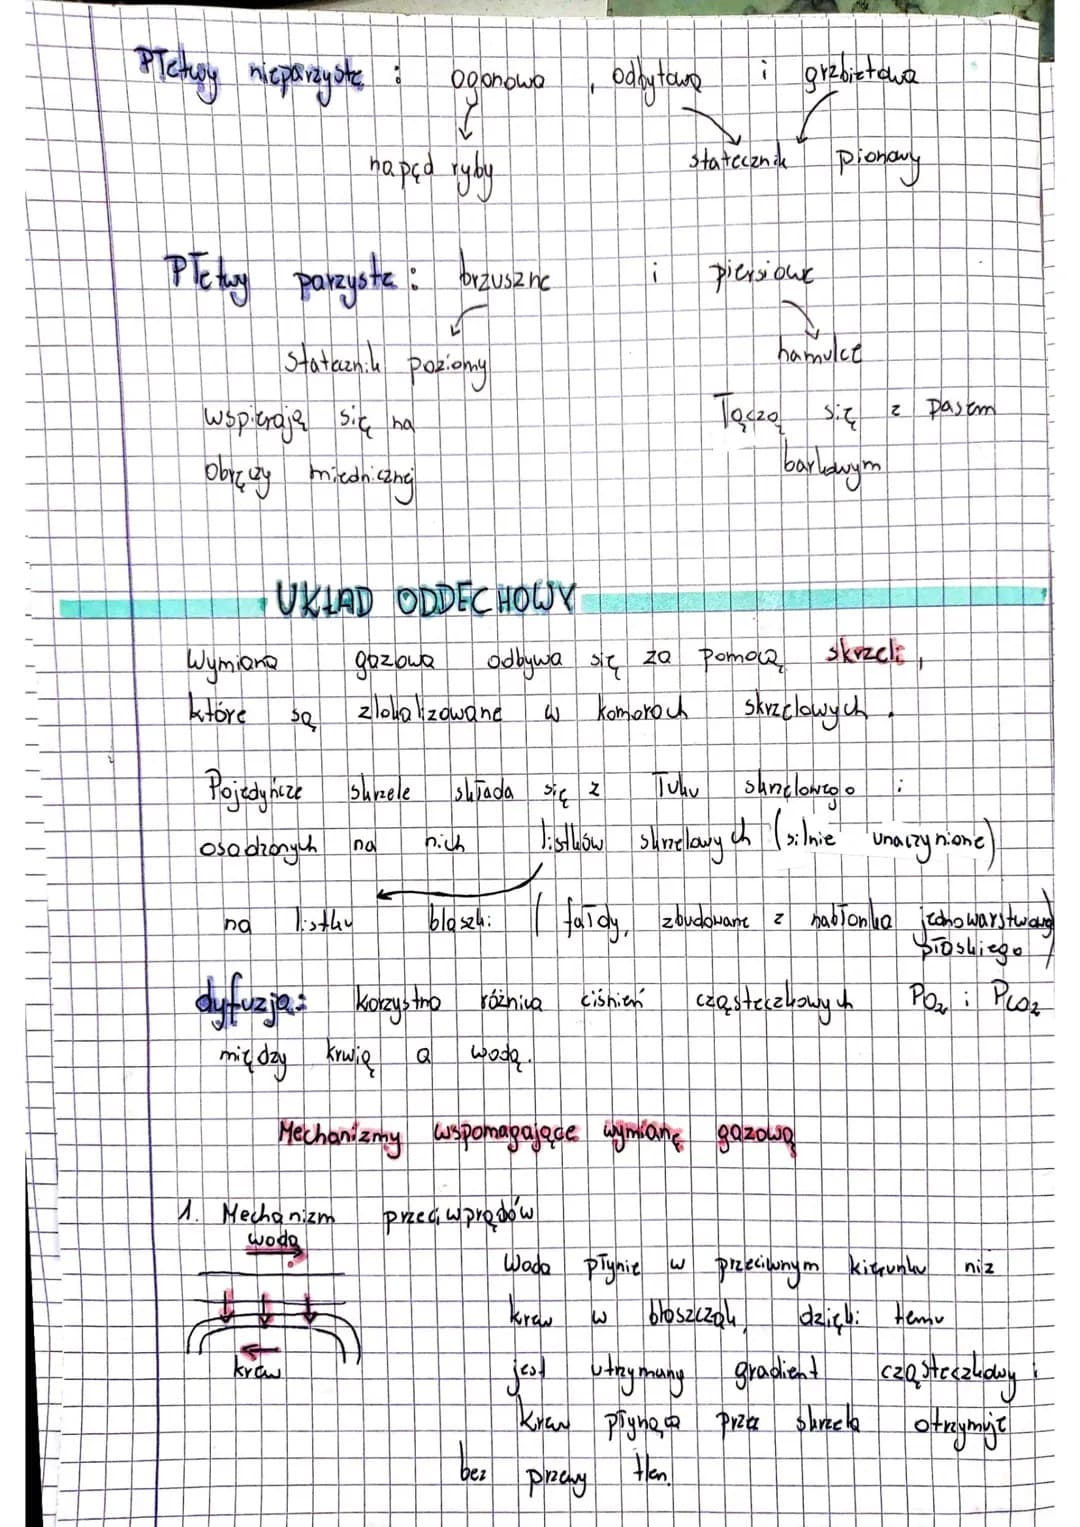 Płetwy nieparzyste : ogonowa , odbytowa i grzbietowa
napęd ryby
statecznik pionowy
Płetwy parzyste : brzuszne i piersiowe
statecznik poziomy
hamulce
wspierają się na
Łączą się z pasem
obręczy miednicznej
barkowym
UKŁAD ODDECHOWY
Wymiana gazowa odbywa się za pomocą skrzeli ,
które są zlokalizowane w komorach skrzelowych .
Pojedyńcze skrzele składa się z łuku skrzelowego i
osadzonych na nich listków skrzelowych (silnie unaczynione)
na listku blaszki ( fałdy, zbudowane z nabłonka jednowarstwowego
płaskiego )
dyfuzja: korzystna różnica ciśnień cząsteczkowych PO2 i PCO2
między krwią a wodą.
Mechanizmy wspomagające wymianę gazową
1. Mechanizm przeciwprądów
woda
Woda płynie w przeciwnym kierunku niż
krew w blaszczak, dzięki temu
krew
jest utrzymany gradient cząsteczkowy i
krew płynąca przez skrzela otrzymuje
bez przerwy tlen.